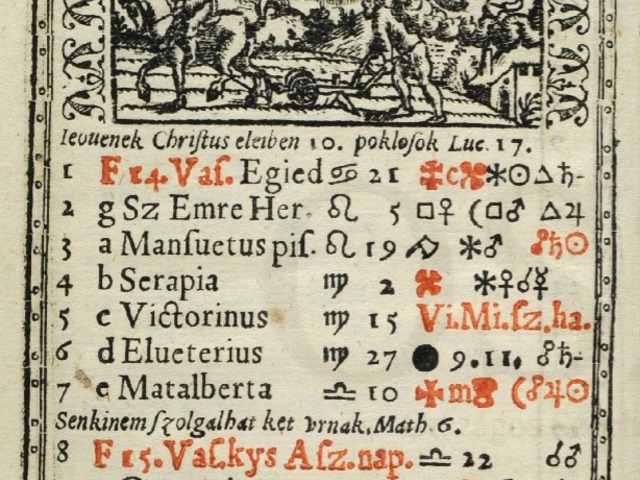 Ievuenek Chriſtus eleiben 10. pokloſok Luc. 17.
1 F 14. Vaſ. Egied ♋ 21 ✶☉△♄
2 g Sz Emre Her. ♌ 5 □♀ (□♂ △♃
3 a Manſuetus piſ. ♌ 19 ✶♂ ☍♄☉
4 b Serapia ♍ 2 ✶♀☌☿
5 c Victorinus ♍ 15 Vi.Mi.ſz.ha.
6 d Elueterius ♍ 27 ● 9.11. ☍♄
7 e Matalberta ♎ 10 (☍♃☉
Senkinem ſzolgalhat ket vrnak, Math 6.
8 F 15. Vaſ.kys Aſz.nap. ♎ 22 ☌♂